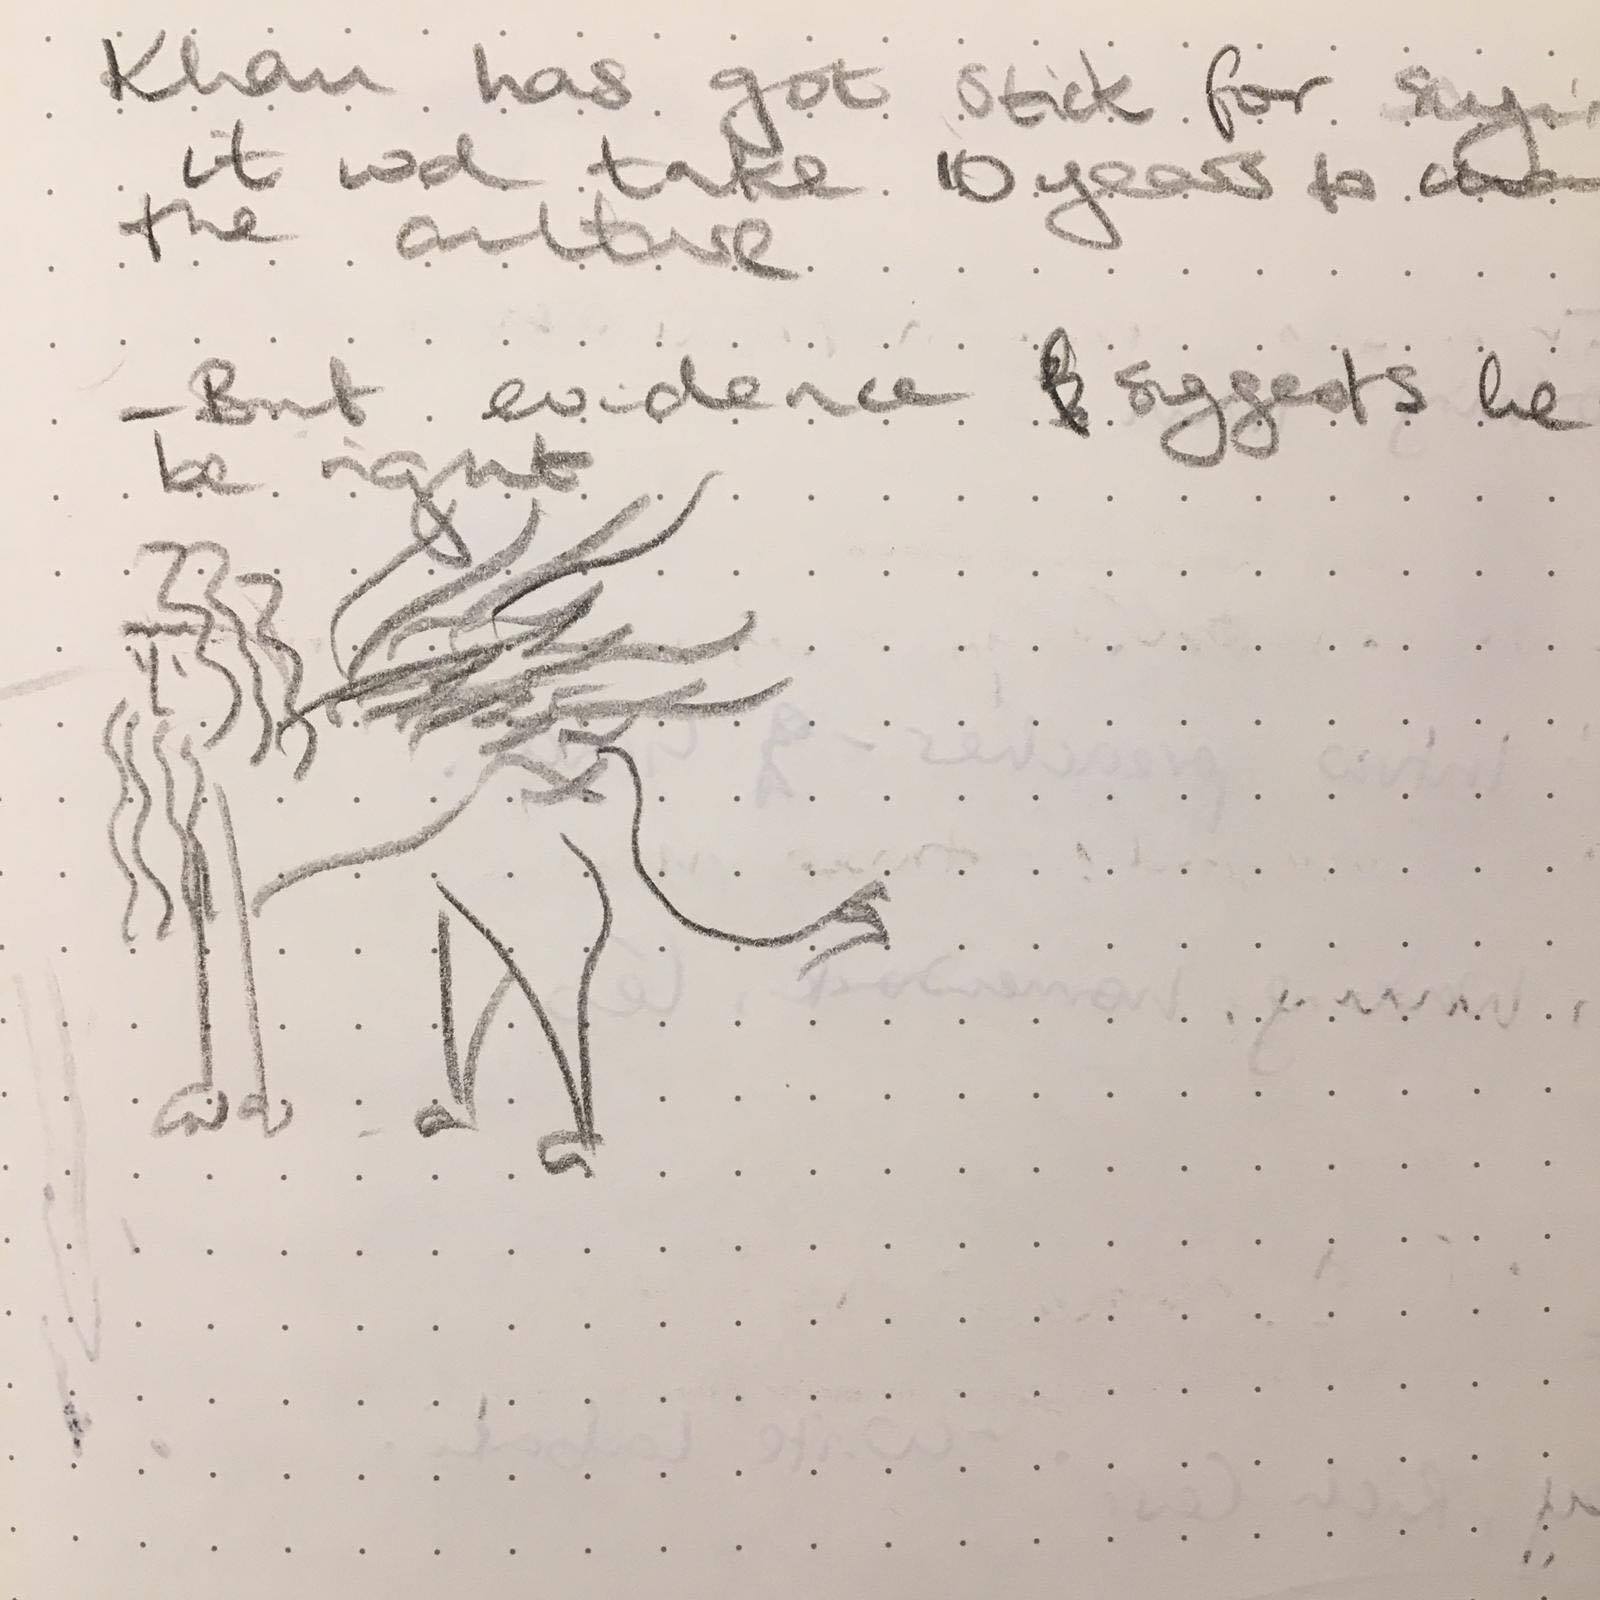 Khan has got stick for sayin
it wd take 10 years to
the culture
- But evidence suggests he
be right